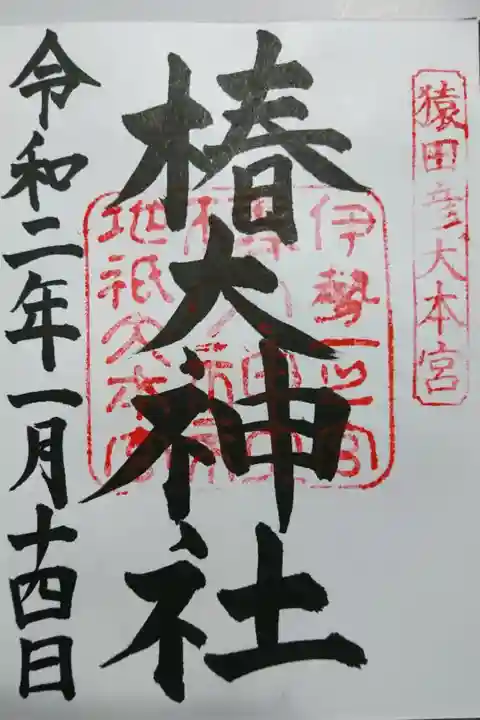 猿田彦大本宮
椿大神社
伊勢一之宮
地祇大本宮
令和二年一月十四日